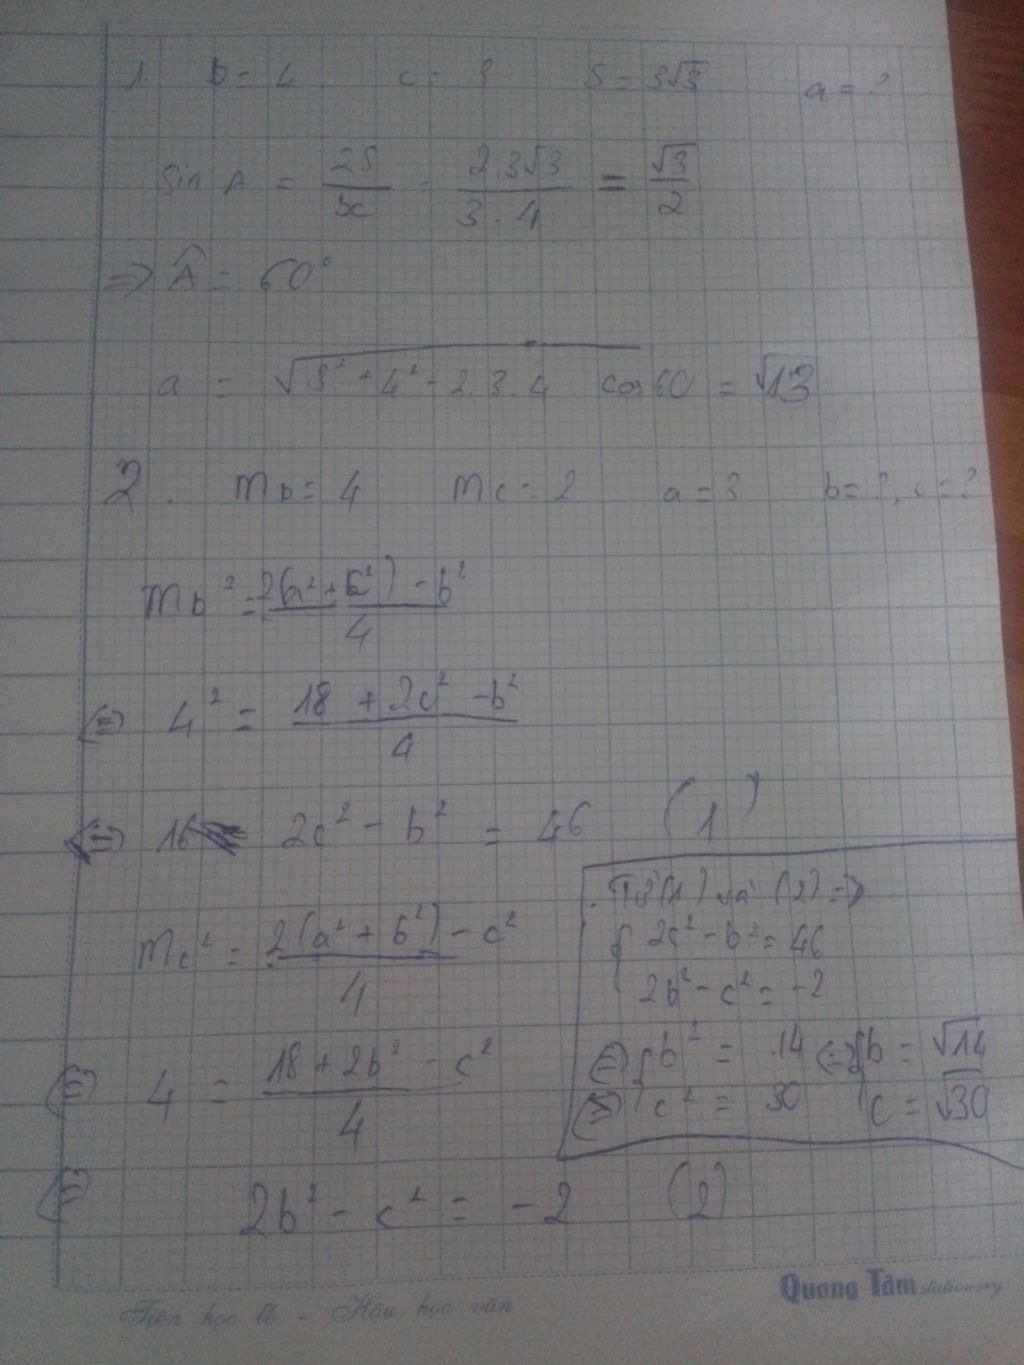 1. b = 4 c = 3 S = 3√3 a = ?
Sin A = 2S/bc = 2.3√3/3.4 = √3/2
⇒ Â = 60°
a = √3² + 4² - 2.3.4. cos 60 = √13
2. mb = 4 mc = 2 a = 3 b = ?, c = ?
mb² = 2(a² + c²) - b²/4
⇔ 4² = 18 + 2c² - b²/4
⇔ 16 2c² - b² = 46 (1)
mc² = 2(a² + b²) - c²/4
⇔ 4 = 18 + 2b² - c²/4
⇔ 2b² - c² = -2 (2)
Từ (1) và (2) ⇒
{ 2c² - b² = 46
2b² - c² = -2
⇔ { b² = 14 ⇔ { b = √14
c² = 30 c = √30
Quang Tâm stationery
Tiên học lễ - Hậu học văn